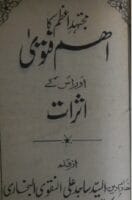 مجتہد اعظم کا
اہم فتویٰ
اور اس کے
اثرات
از قلم
السید ساجد علی النقوی البخاری